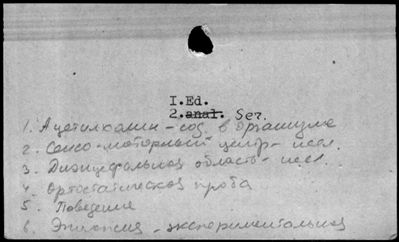 I.Ed.
2.anal. Ser.
1. Ацетилхолин - сод. в организме
2. Сенсо-моторный центр - иссл.
3. Диэнцефальная область - иссл.
4. Ортостатическая проба
5. Поведение
6. Эпилепсия - экспериментальная